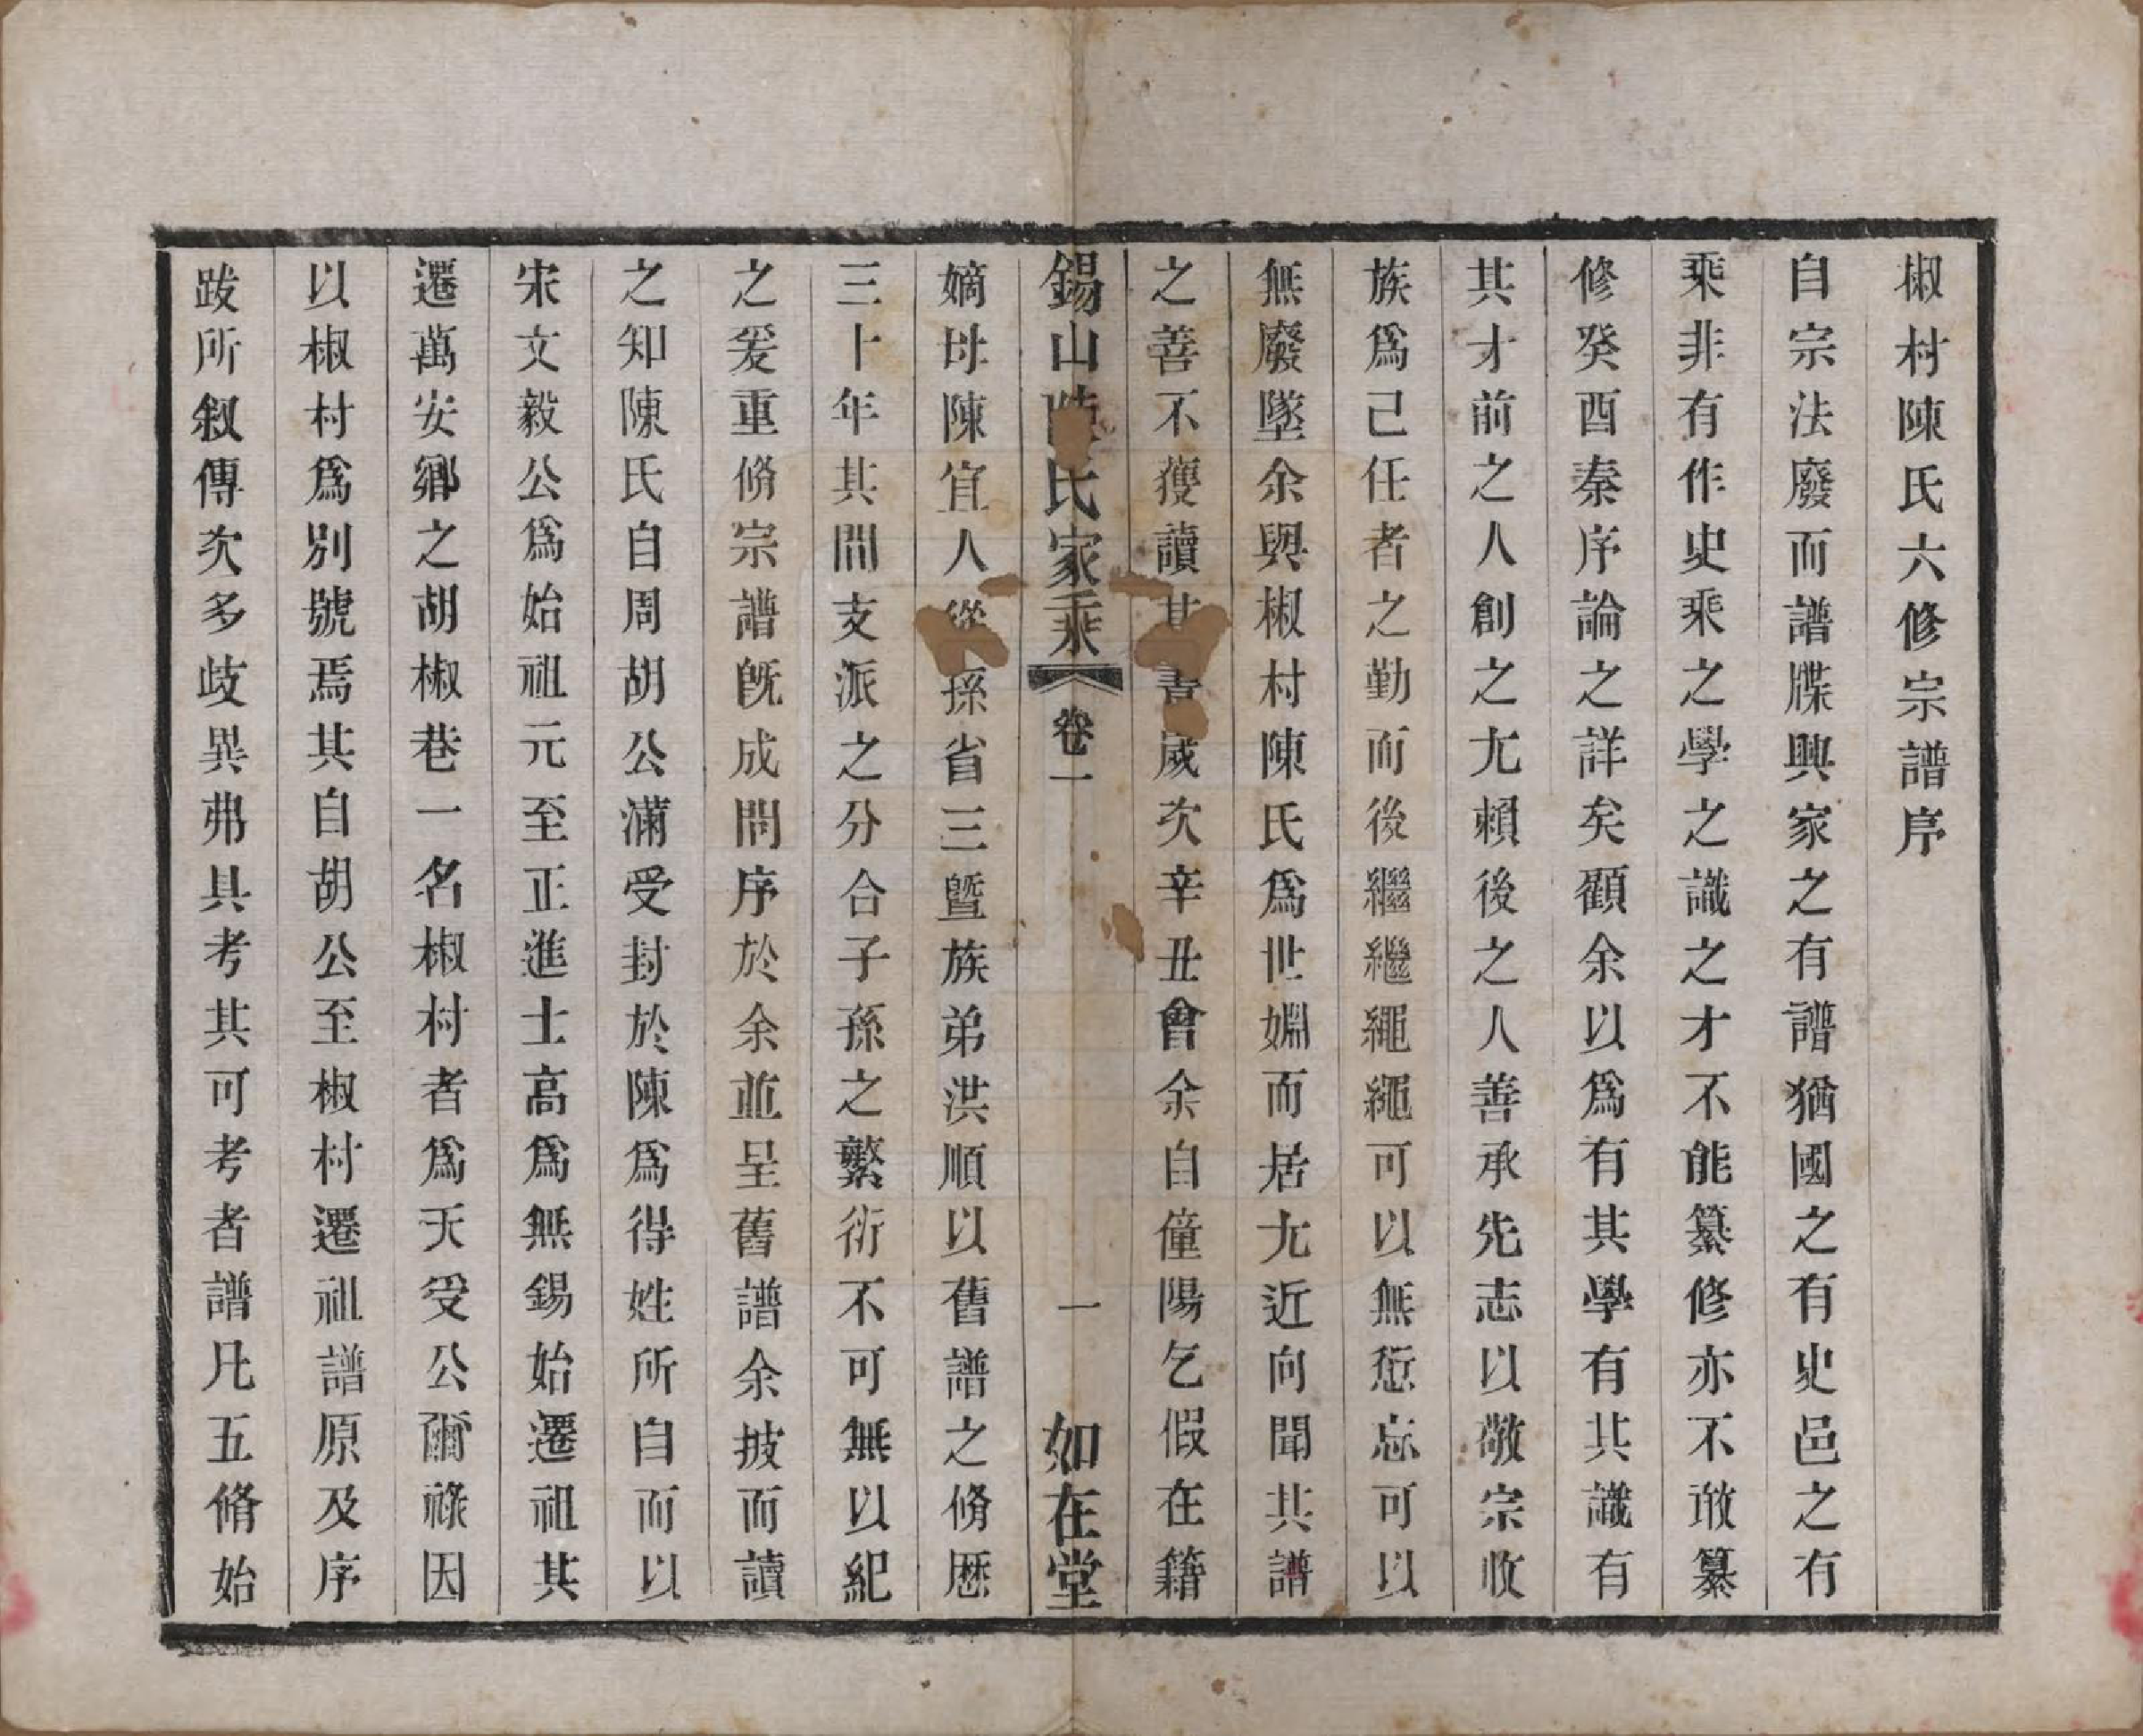 椒村陳氏六修宗譜序
自宗法廢而譜牒興家之有譜猶國之有史邑之有
乘非有作史乘之學之識之才不能纂修亦不敢纂
修癸酉秦序論之詳矣顧余以爲有其學有其識有
其才前之人創之尢賴後之人善承先志以敬宗收
族爲己任者之勤而後繼繼繩繩可以無愆忘可以
無廢墜余與椒村陳氏爲世婣而居尢近向聞其譜
之善不獲讀其書歲次辛丑會余自僮陽乞假在籍
錫山陳氏家乘 卷一 一 如在堂
嫡母陳宜人從孫省三曁族弟洪順以舊譜之脩歷
三十年其間支派之分合子孫之繁衍不可無以紀
之爰重脩宗譜旣成問序於余並呈舊譜余披而讀
之知陳氏自周胡公滿受封於陳爲得姓所自而以
宋文毅公爲始祖元至正進士高爲無錫始遷祖其
遷萬安鄉之胡椒巷一名椒村者爲天受公爾祿因
以椒村爲別號焉其自胡公至椒村遷祖譜原及序
跋所敘傳次多歧異弗具考其可考者譜凡五脩始